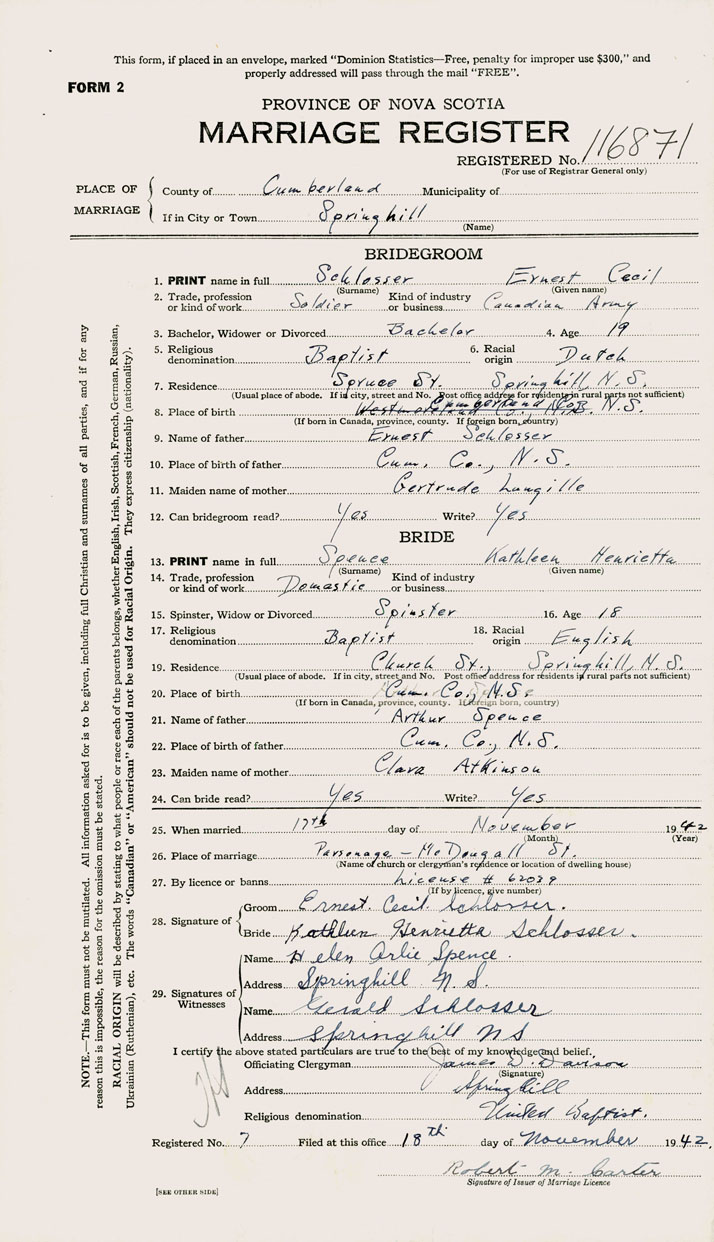 This form, if placed in an envelope, marked "Dominion Statistics—Free, penalty for improper use $300," and
properly addressed will pass through the mail "FREE".
FORM 2
PROVINCE OF NOVA SCOTIA
MARRIAGE REGISTER
REGISTERED No. 116871
(For use of Registrar General only)
PLACE OF MARRIAGE
County of Cumberland Municipality of
If in City or Town Springhill
(Name)
BRIDEGROOM
1. PRINT name in full Schlosser Ernest Cecil
(Surname) (Given name)
2. Trade, profession or kind of work Soldier Kind of industry or business Canadian Army
3. Bachelor, Widower or Divorced Bachelor 4. Age 19
5. Religious denomination Baptist 6. Racial origin Dutch
7. Residence Spruce St. Springhill, N.S.
(Usual place of abode. If in city, street and No. Post office address for residents in rural parts not sufficient)
8. Place of birth Westmoreland Co., N.B. Cumberland Co. N.S.
(If born in Canada, province, county. If foreign born, country)
9. Name of father Ernest Schlosser
10. Place of birth of father Cum. Co., N.S.
11. Maiden name of mother Gertrude Langille
12. Can bridegroom read? Yes Write? Yes
BRIDE
13. PRINT name in full Spence Kathleen Henrietta
(Surname) (Given name)
14. Trade, profession or kind of work Domastic Kind of industry or business
15. Spinster, Widow or Divorced Spinster 16. Age 18
17. Religious denomination Baptist 18. Racial origin English
19. Residence Church St., Springhill, N.S.
(Usual place of abode. If in city, street and No. Post office address for residents in rural parts not sufficient)
20. Place of birth Cum. Co., N.S.
(If born in Canada, province, county. If foreign born, country)
21. Name of father Arthur Spence
22. Place of birth of father Cum. Co., N.S.
23. Maiden name of mother Clara Atkinson
24. Can bride read? Yes Write? Yes
25. When married 17th day of November 1942
(Month) (Year)
26. Place of marriage Parsonage – McDougall St.
(Name of church or clergyman's residence or location of dwelling house)
27. By licence or banns License # 62039
(If by licence, give number)
28. Signature of
Groom Ernest. Cecil. Schlosser.
Bride Kathleen Henrietta Schlosser.
29. Signatures of Witnesses
Name Helen Arlie Spence.
Address Springhill N.S.
Name Gerald Schlosser
Address Springhill N S
I certify the above stated particulars are true to the best of my knowledge and belief.
Officiating Clergyman James D. Davison
(Signature)
Address Springhill
Religious denomination United Baptist.
Registered No. 7 Filed at this office 18th day of November 1942.
Robert M. Carter
Signature of Issuer of Marriage Licence
[SEE OTHER SIDE]
NOTE.—This form must not be mutilated. All information asked for is to be given, including full Christian and surnames of all parties, and if for any
reason this is impossible, the reason for the omission must be stated.
RACIAL ORIGIN will be described by stating to what people or race each of the parents belongs, whether English, Irish, Scottish, French, German, Russian,
Ukrainian (Ruthenian), etc. The words "Canadian" or "American" should not be used for Racial Origin. They express citizenship (nationality).